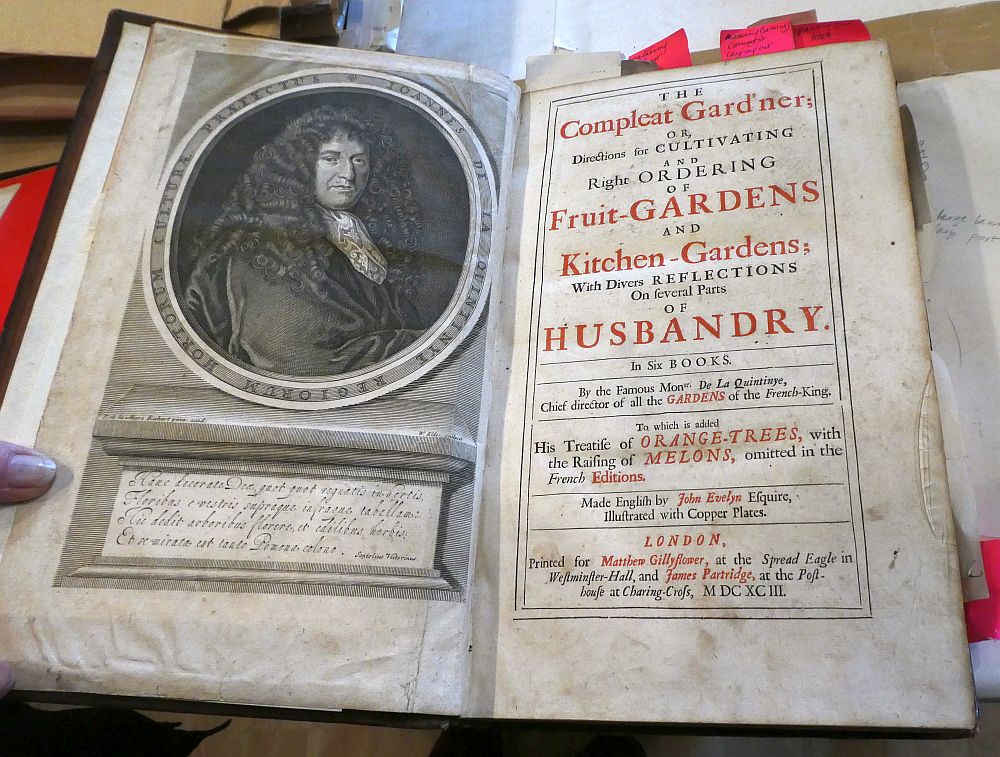 IOANNES DE LA QUINTINYE REGIORUM HORTORUM CULTURÆ PRÆFECTUS
Hanc decorate Deæ, quot quot regnatis in hortis,
Floribus e vestris supraque infraque tabellam:
Hic dedit arboribus florere, et edilibus herbis,
Et se mirata est tanto Pomona colono.
Santolius Victorinus
THE
Compleat Gard'ner;
OR,
Directions for CULTIVATING
AND
Right ORDERING
OF
Fruit-GARDENS
AND
Kitchen-Gardens;
With Divers REFLECTIONS
On ſeveral Parts
OF
HUSBANDRY.
In Six BOOKS.
By the Famous Monsr. De La Quintinye,
Chief director of all the GARDENS of the French-King.
To which is added
His Treatiſe of ORANGE-TREES, with
the Raiſing of MELONS, omitted in the
French Editions.
Made Engliſh by John Evelyn Eſquire,
Illuſtrated with Copper Plates.
LONDON,
Printed for Matthew Gillyflower, at the Spread Eagle in
Weſtminſter-Hall, and James Partridge, at the Poſt-
houſe at Charing-Croſs, M DC XC III.